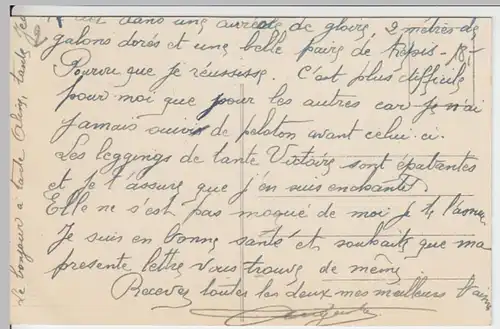 dans une auréole de gloire 2 mètres de
galons dorés et une belle paire de képis -
Pourvu que je réussisse. C'est plus difficile
pour moi que pour les autres car je n'ai
jamais suivi de peloton avant celui-ci.
Les leggings de tante Victoire sont épatantes
et je t'assure que j'en suis enchanté.
Elle ne s'est pas moqué de moi je te l'assure
Je suis en bonne santé et souhaite que ma
présente lettre vous trouve de même.
Recevez toutes les deux mes meilleurs
Le bonjour à tante tante